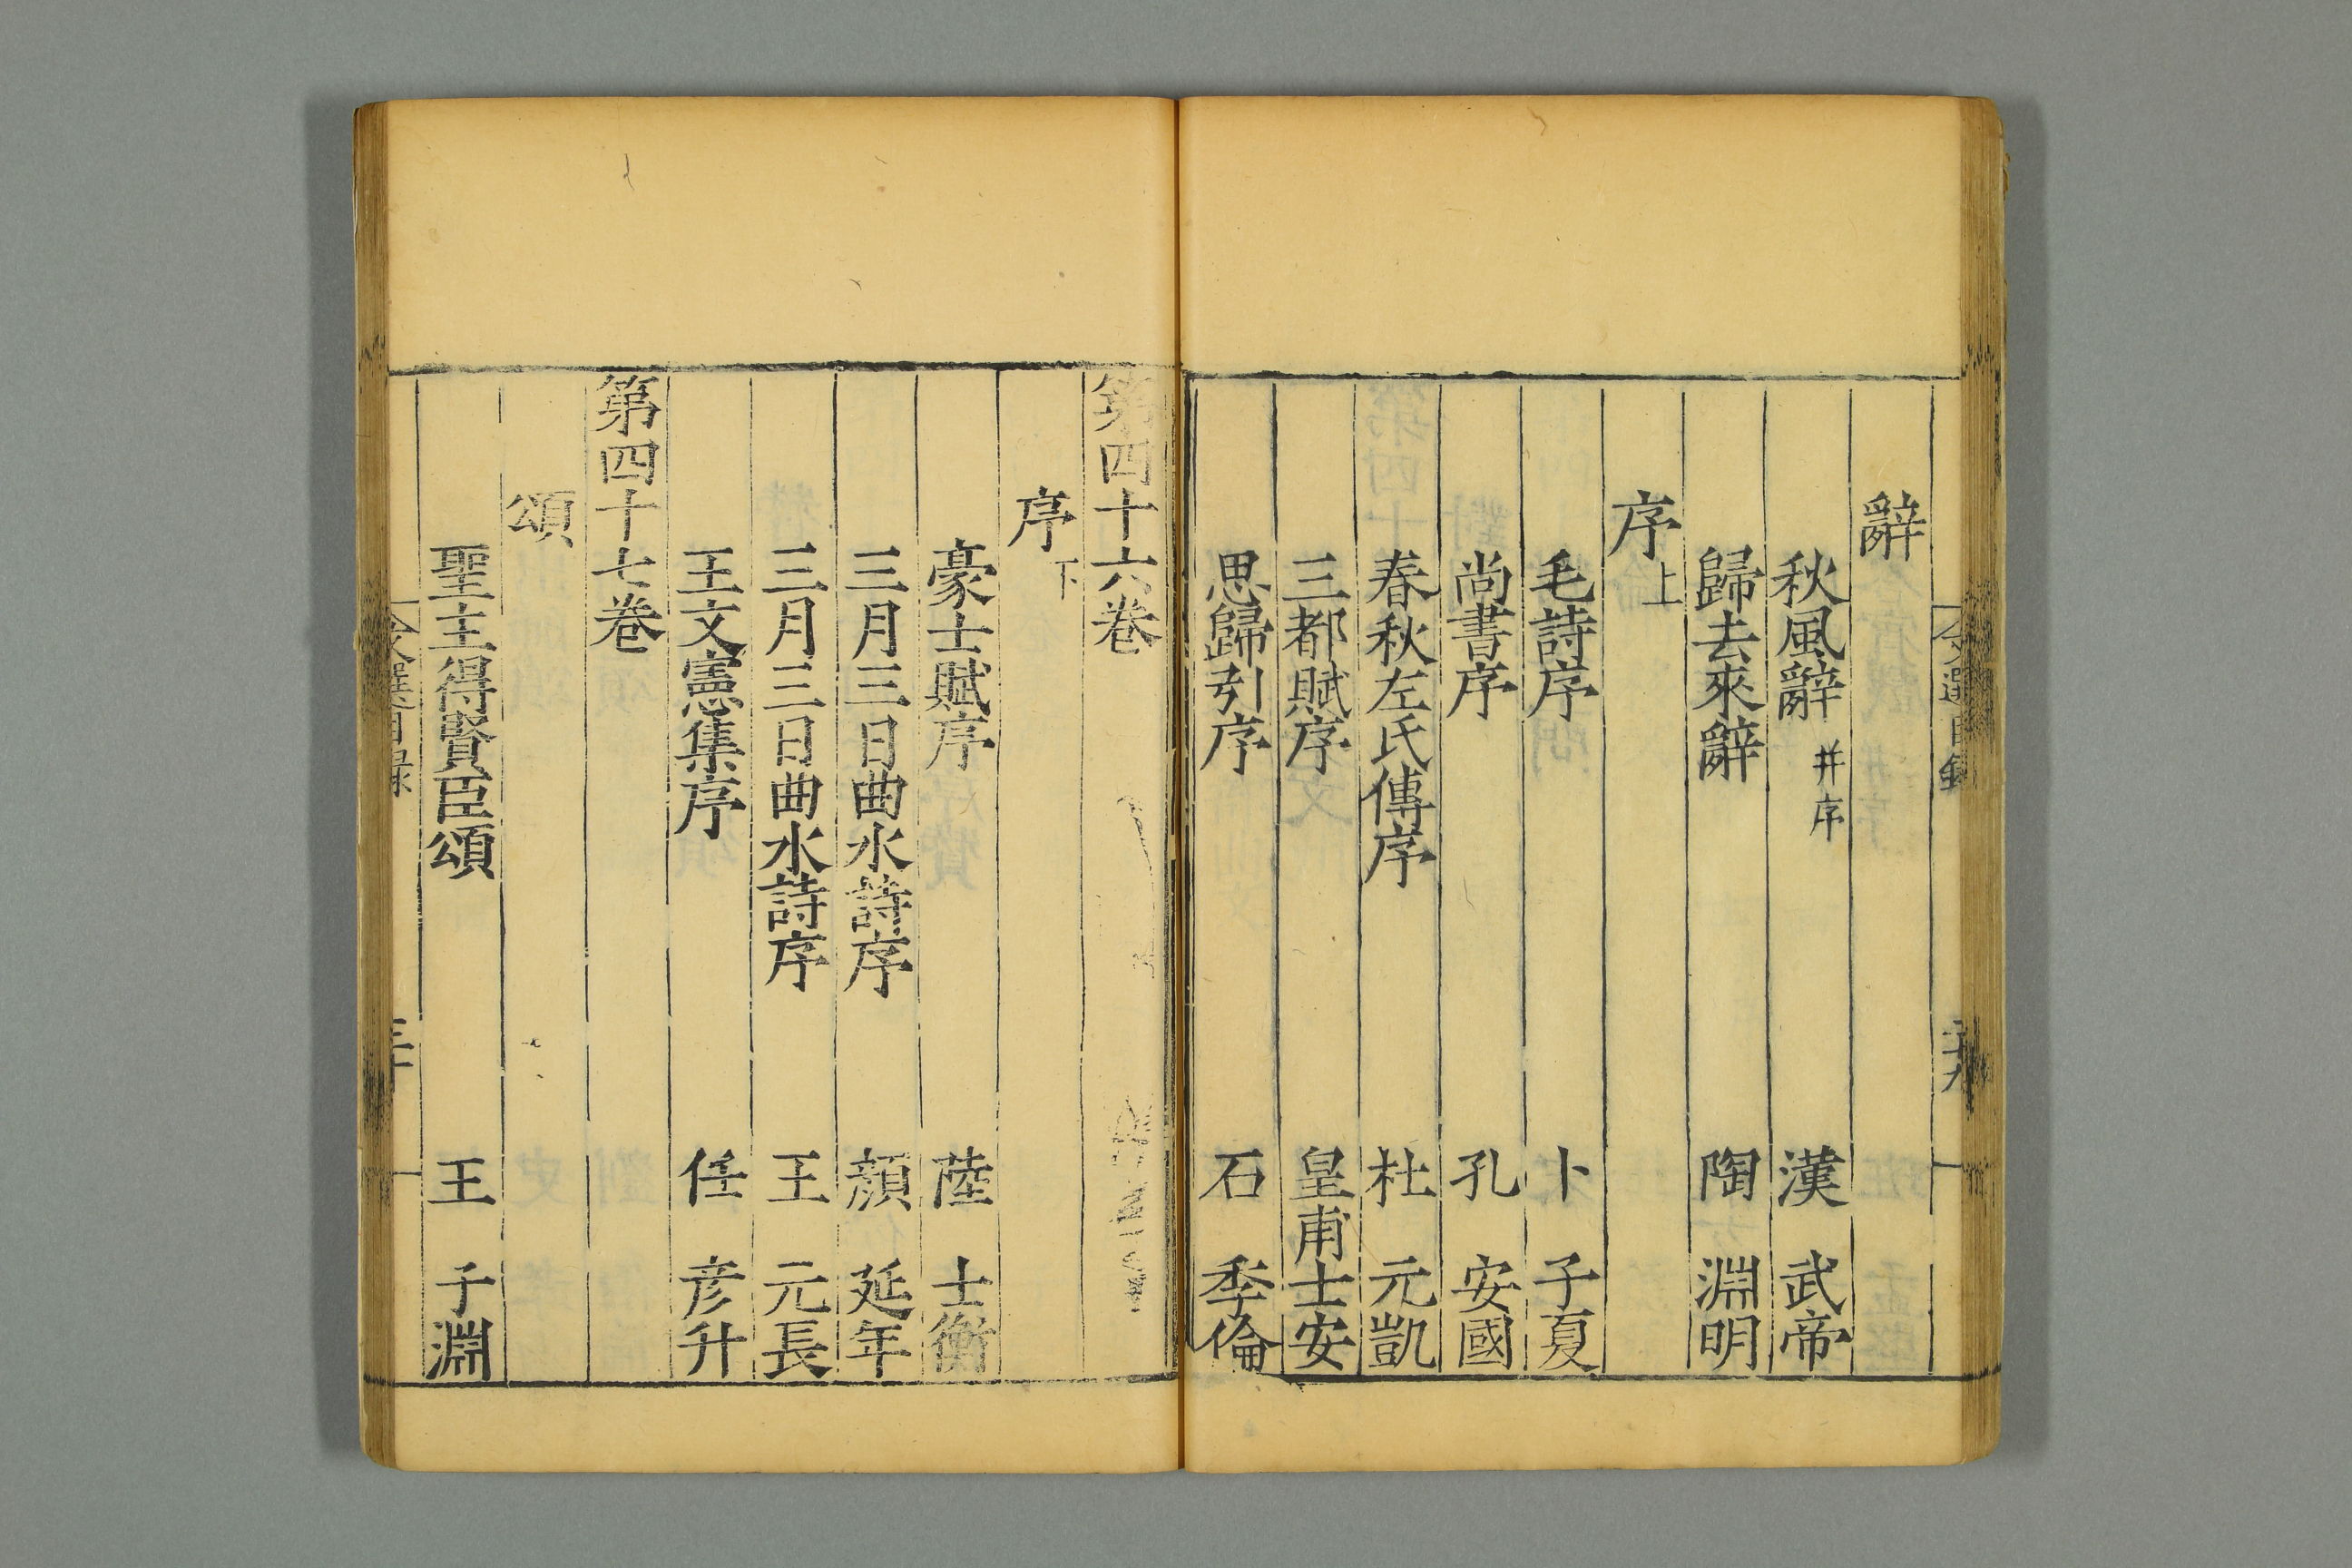 辭
秋風辭 并序 漢 武帝
歸去來辭 陶 淵明
序上
毛詩序 卜 子夏
尚書序 孔 安國
春秋左氏傳序 杜 元凱
三都賦序 皇甫士安
思歸引序 石 季倫
第四十六卷
序下
豪士賦序 陸 士衡
三月三日曲水詩序 顏 延年
三月三日曲水詩序 王 元長
王文憲集序 任 彥升
第四十七卷
頌
聖主得賢臣頌 王 子淵